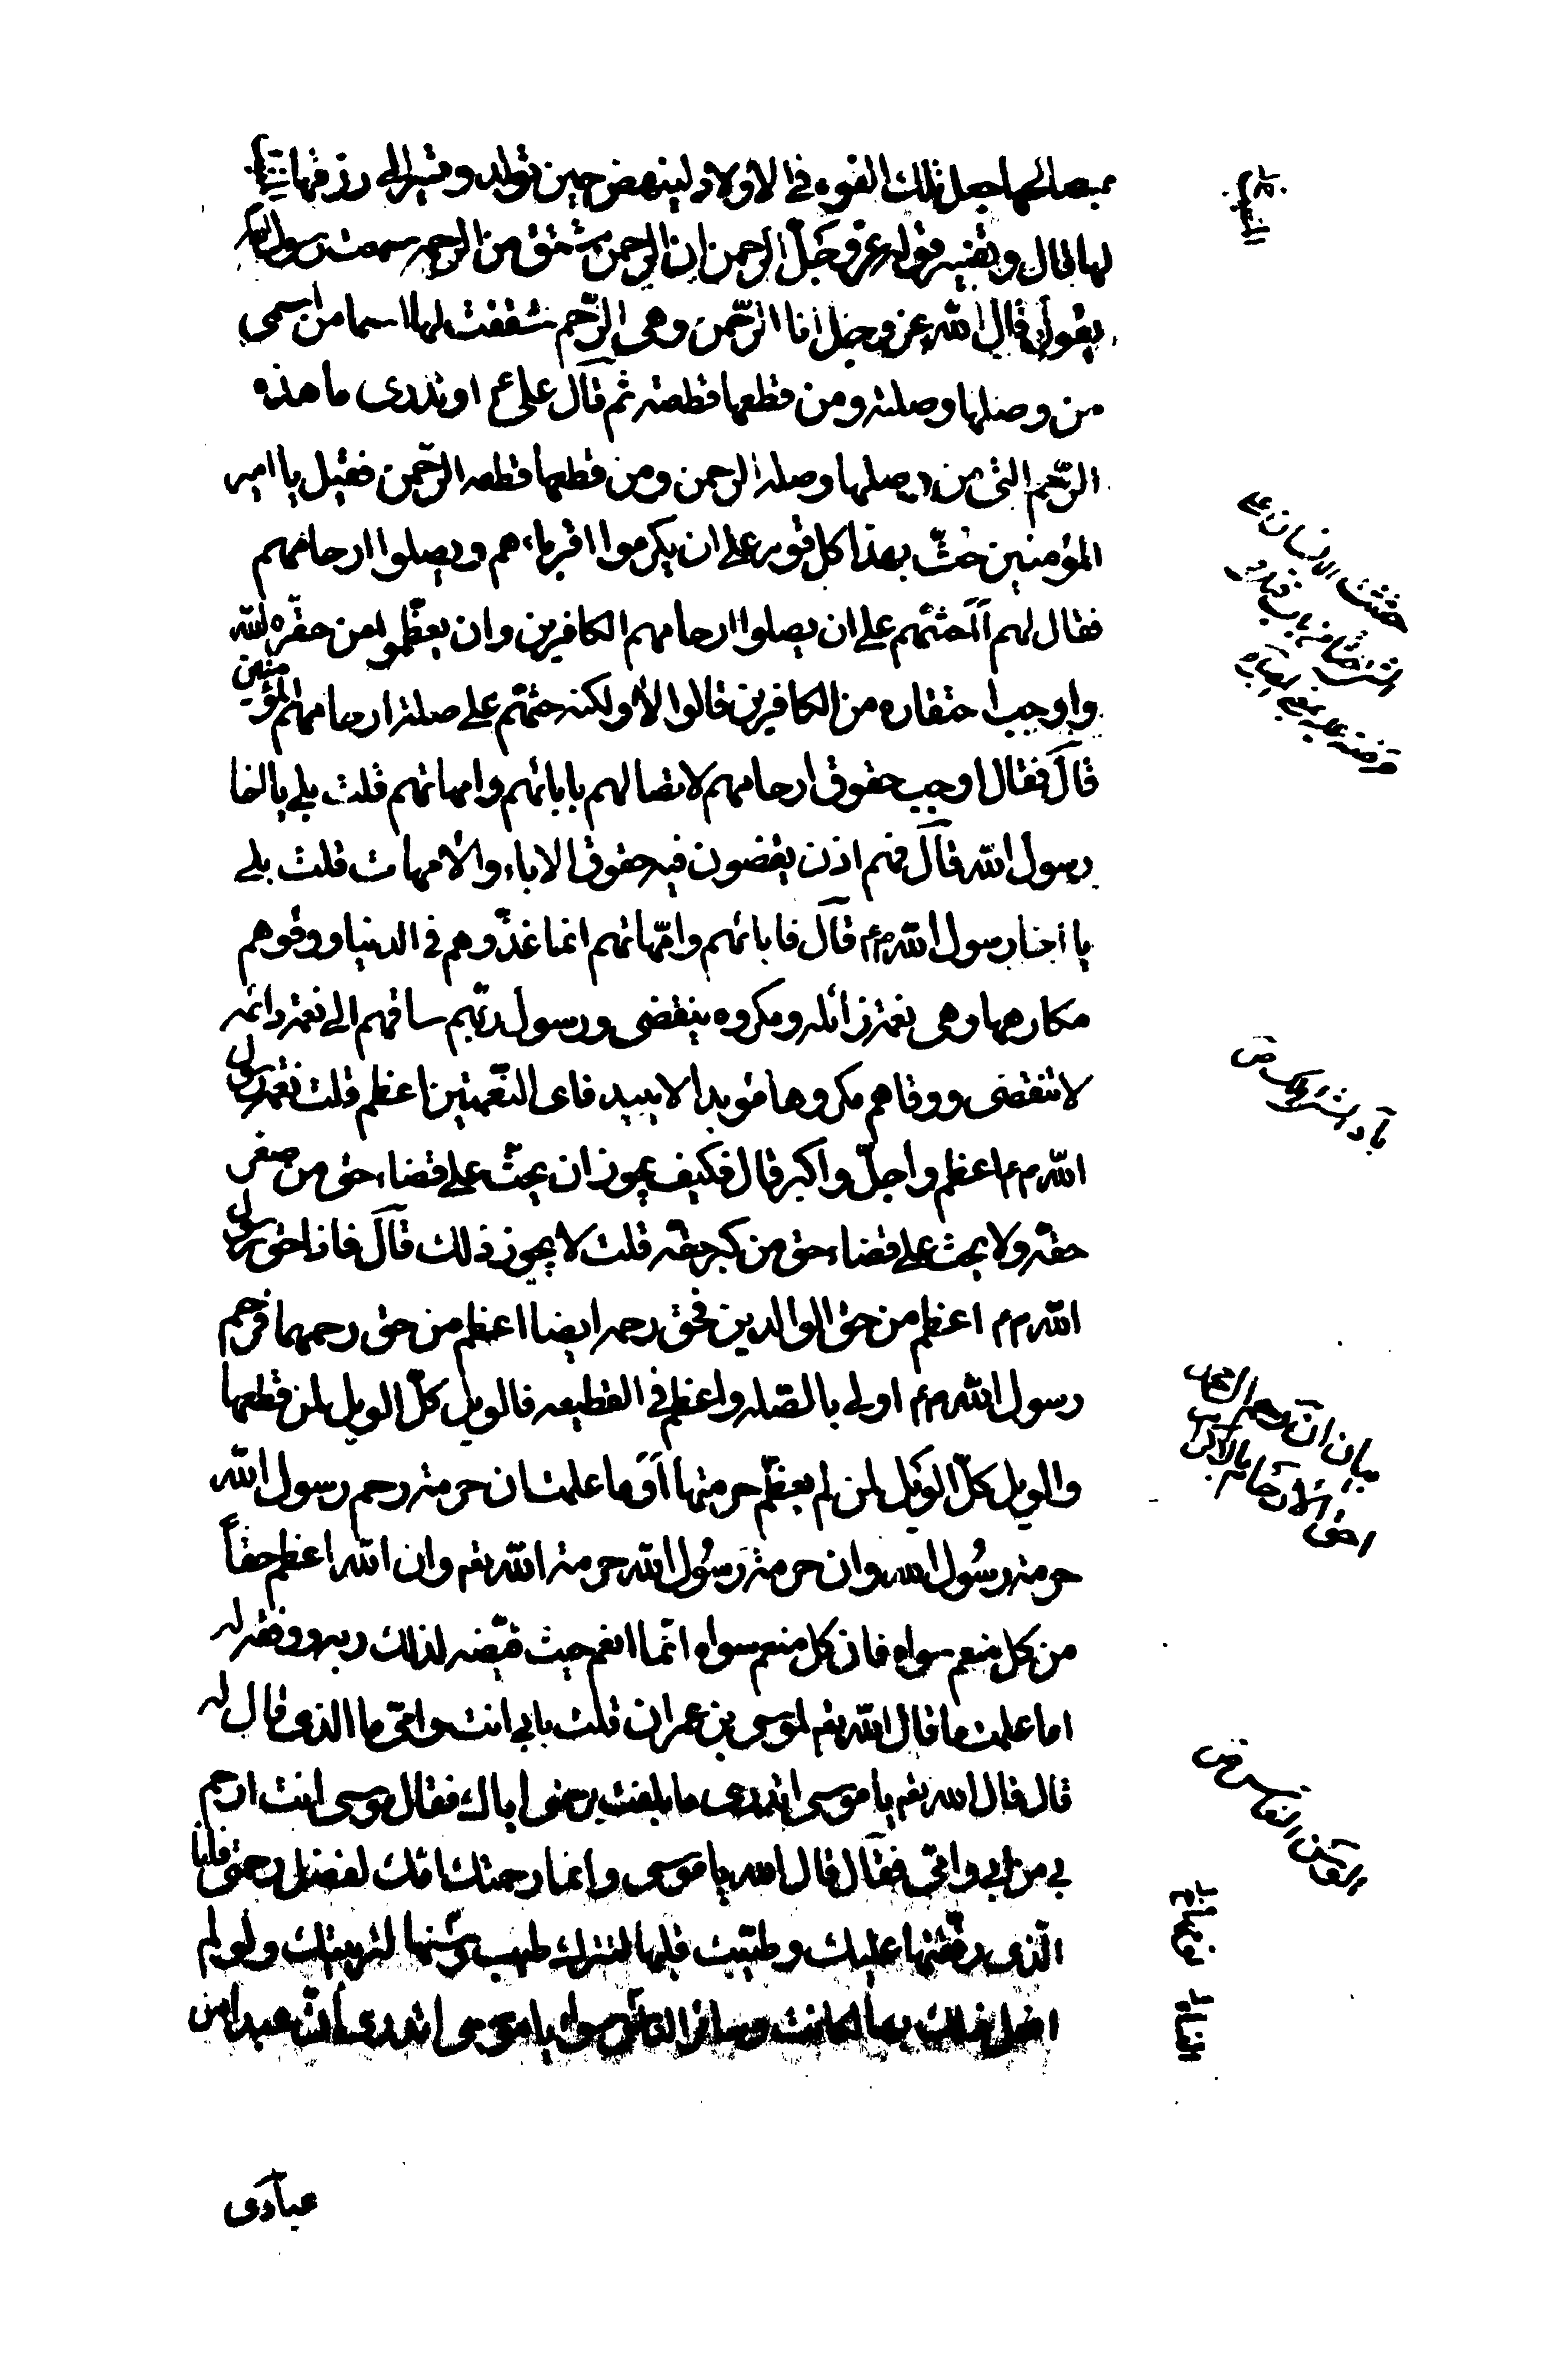 بمصالحها جعل تلك القوه في الاولاد لينهض حين تولد وتسير الى رزقها المسبب
لها قال وتفسير قوله عز وجل الرحمن ان الرحمن مشتق من الرحم سمعت رسول الله
يقول قال الله عز وجل انا الرحمن وهى الرحم شققت لها اسما من اسمى
من وصلها وصلته ومن قطعها قطعته ثم قال على ع او تدرى ما هذه
الرحم التى من يصلها وصله الرحمن ومن قطعها قطعه الرحمن فقيل يا امير
المؤمنين حثّ بهذا كل قوم على ان يكرموا اقرباءهم ويصلوا ارحامهم
فقال لهم أيحثهم على ان يصلوا ارحامهم الكافرين وان يعظموا من حقره الله
واوجب احتقاره من الكافرين قالوا لا ولكنه حثهم على صلة ارحامهم المؤمنين
قال فقال اوجب حقوق ارحامهم لاتصالهم بابائهم وامهاتهم قلت بلى يا اخا
رسول الله قال فهم اذن يقضون فيه حقوق الاباء والامهات قلت بلى
يا اخا رسول الله م م قال فابائهم وامّهاتهم انما غذّوهم في الدنيا ووقوهم
مكارهها وهى نعمة زائله ومكروه ينقضى ورسول ربّهم ساقهم الى نعمة دائمه
لا تنقضى ووقاهم مكروها مؤبدا لا يبيد فاى النّعمتين اعظم قلت نعمة رسول
الله م م اعظم واجلّ واكبر قال فكيف يجوز ان يحثّ على قضاء حق من صغر
حقه ولا يحث على قضاء حق من كبر حقه قلت لا يجوز ذلك قال فاذا حق رسول
الله م م اعظم من حق الوالدين فحق رحمه ايضا اعظم من حق رحمهما فرحم
رسول الله م م اولى بالصّله واعظم في القطيعه فالويل كلّ الويل لمن قطعها
والويل كلّ الويل لمن لم يعظّم حرمتها أوما علمت ان حرمة رحم رسول الله
حرمة رسول الله وان حرمة رسُول الله حرمة الله تعم وان الله اعظم حقاً
من كل منعم سواه فان كل منعم سواه انّما انعم حيث قيّضه لذلك ربه ووفقه له
اما علمت ما قال الله تعم لموسى بن عمران قلت بابى انت وامّى ما الذى قال له
قال قال الله تعم يا موسى اتدرى ما بلغت برحمتى اياك فقال موسى انت ارحم
بى من ابى وامّى فقال قال الله يا موسى وانما رحمتك امّك لفضل رحمتى فانا
الّذى رقّقتها عليك وطيّبت قلبها لتترك طيب وسنها لتربيتك ولو لم
افعل ذلك بها لكانت وسائر النّاس سواء يا موسى اتدرى ان عبدا من
عبادى